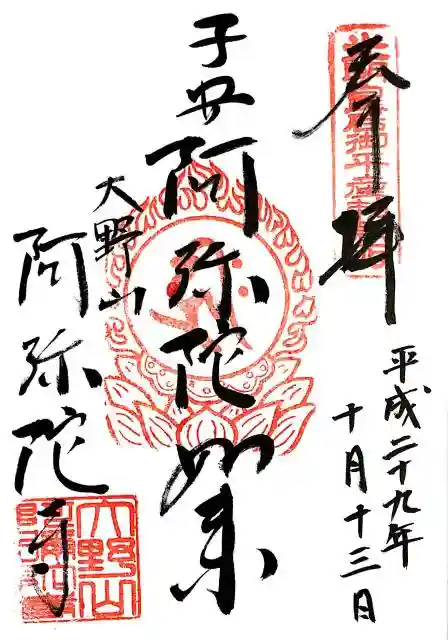 奉拝
平成二十九年
十月十三日
子安
阿弥陀如来
大野山
阿弥陀寺
大野山